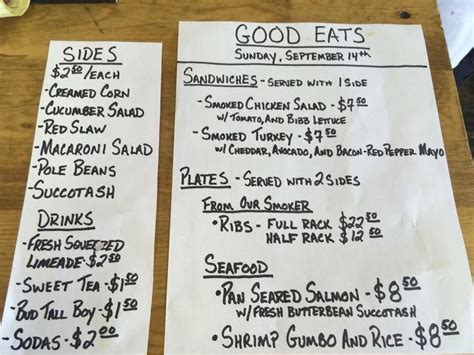 SIDES
$2.50/EACH
-CREAMED CORN
-CUCUMBER SALAD
-RED SLAW
-MACARONI SALAD
-POLE BEANS
-SUCCOTASH
DRINKS
-FRESH SQUEEZED
LIMEADE - $2.50
-SWEET TEA - $1.50
-BUD TALL BOY - $1.50
-SODAS - $2.00
GOOD EATS
SUNDAY, SEPTEMBER 14TH
SANDWICHES - SERVED WITH 1 SIDE
-SMOKED CHICKEN SALAD - $7.50
W/ TOMATO, AND BIBB LETTUCE
-SMOKED TURKEY - $7.50
W/ CHEDDAR, AVOCADO, AND BACON-RED PEPPER MAYO
PLATES - SERVED WITH 2 SIDES
FROM OUR SMOKER
•RIBS - FULL RACK $22.50
HALF RACK $12.50
SEAFOOD
•PAN SEARED SALMON - $8.50
W/ FRESH BUTTERBEAN SUCCOTASH
•SHRIMP GUMBO AND RICE - $8.50